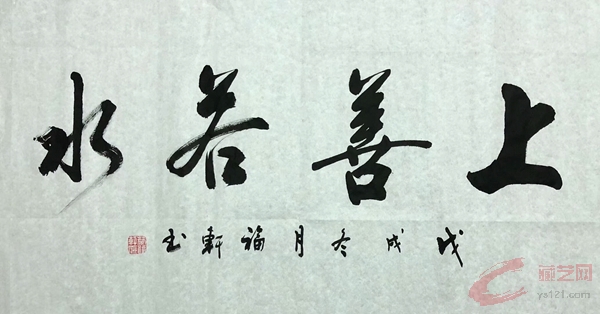 上善若水
戊戌冬月福軒书
藏艺网
ys121.com